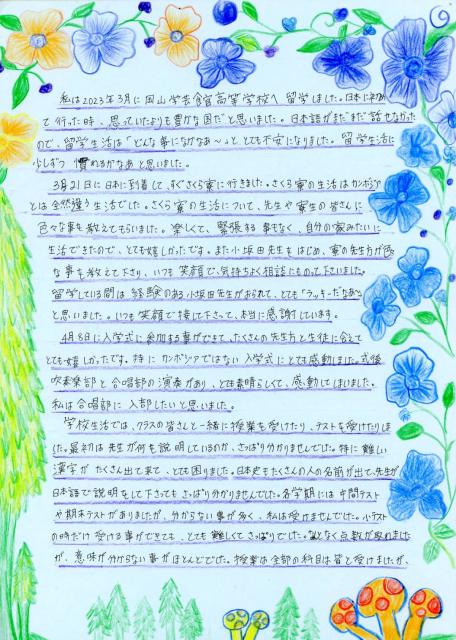 私は2023年3月に岡山学芸館高等学校へ留学しました。日本に初め
て行った時、思っていたより豊かな国だと思いました。日本語がまだまだ話せなかった
ので、留学生活は「どんな事になかなぁ~」ととても不安になりました。留学生活に
少しずつ慣れるかなあと思いました。
3月21日に日本に到着して、すぐさくら寮に行きました。さくら寮の生活はカンボジア
とは全然違う生活でした。さくら寮の生活について、先生や寮生の皆さんに
色々な事を教えてもらいました。楽しくて、緊張する事もなく、自分の家みたいに
生活できたので、とても嬉しかったです。また小坂田先生をはじめ、寮の先生方が色
な事を教えて下さり、いつも笑顔で、気持ちよく相談にものって下さいました。
留学している間は経験のある小坂田先生がおられて、とても「ラッキーだなあ」
と思いました。いつも笑顔で接して下さって、本当に感謝しています。
4月8日に入学式に参加する事ができて、たくさんの先生方と生徒に会えて
とても嬉しかったです。特にカンボジアではない入学式にとても感動しました。式後
吹奏楽部と合唱部の演奏があり、とても素晴らしくて、感動してしまいました。
私は合唱部に入部したいと思いました。
学校生活では、クラスの皆さんと一緒に授業を受けたり、テストを受けたりしま
した。最初は先生が何を説明しているのか、さっぱり分かりませんでした。特に難しい
漢字がたくさん出て来て、とても困りました。日本史もたくさんの人の名前が出て、先生が
日本語で説明をして下さってもさっぱり分かりませんでした。各学期には中間テスト
や期末テストがありましたが、分からない事が多く、私は受けませんでした。小テスト
の時だけ受ける事ができても、とても難しくてさっぱりでした。なんとなく点数が取れました
が、意味が分からない事がほとんどでした。授業は全部の科目は皆と受けましたが、